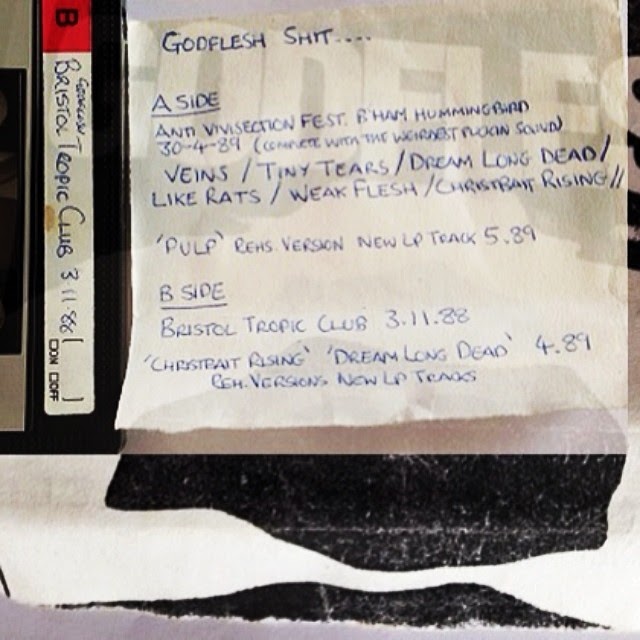 B
GODFLESH -
BRISTOL TROPIC CLUB 3.11.88
ON OFF
GODFLESH SHIT....
A SIDE
ANTI VIVISECTION FEST. B'HAM HUMMINGBIRD
30-4-89 (COMPLETE WITH THE WEIRDEST FUCKIN SOUND)
VEINS / TINY TEARS / DREAM LONG DEAD /
LIKE RATS / WEAK FLESH / CHRISTBAIT RISING //
'PULP' REHS. VERSION NEW LP TRACK 5.89
B SIDE
BRISTOL TROPIC CLUB 3.11.88
'CHRISTBAIT RISING' 'DREAM LONG DEAD' 4.89
REH. VERSIONS NEW LP TRACKS